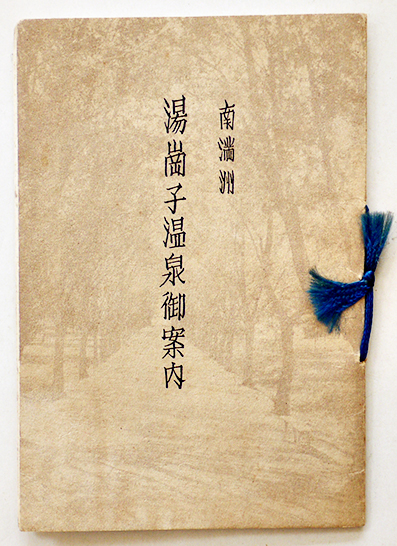 南満洲
湯崗子温泉御案内